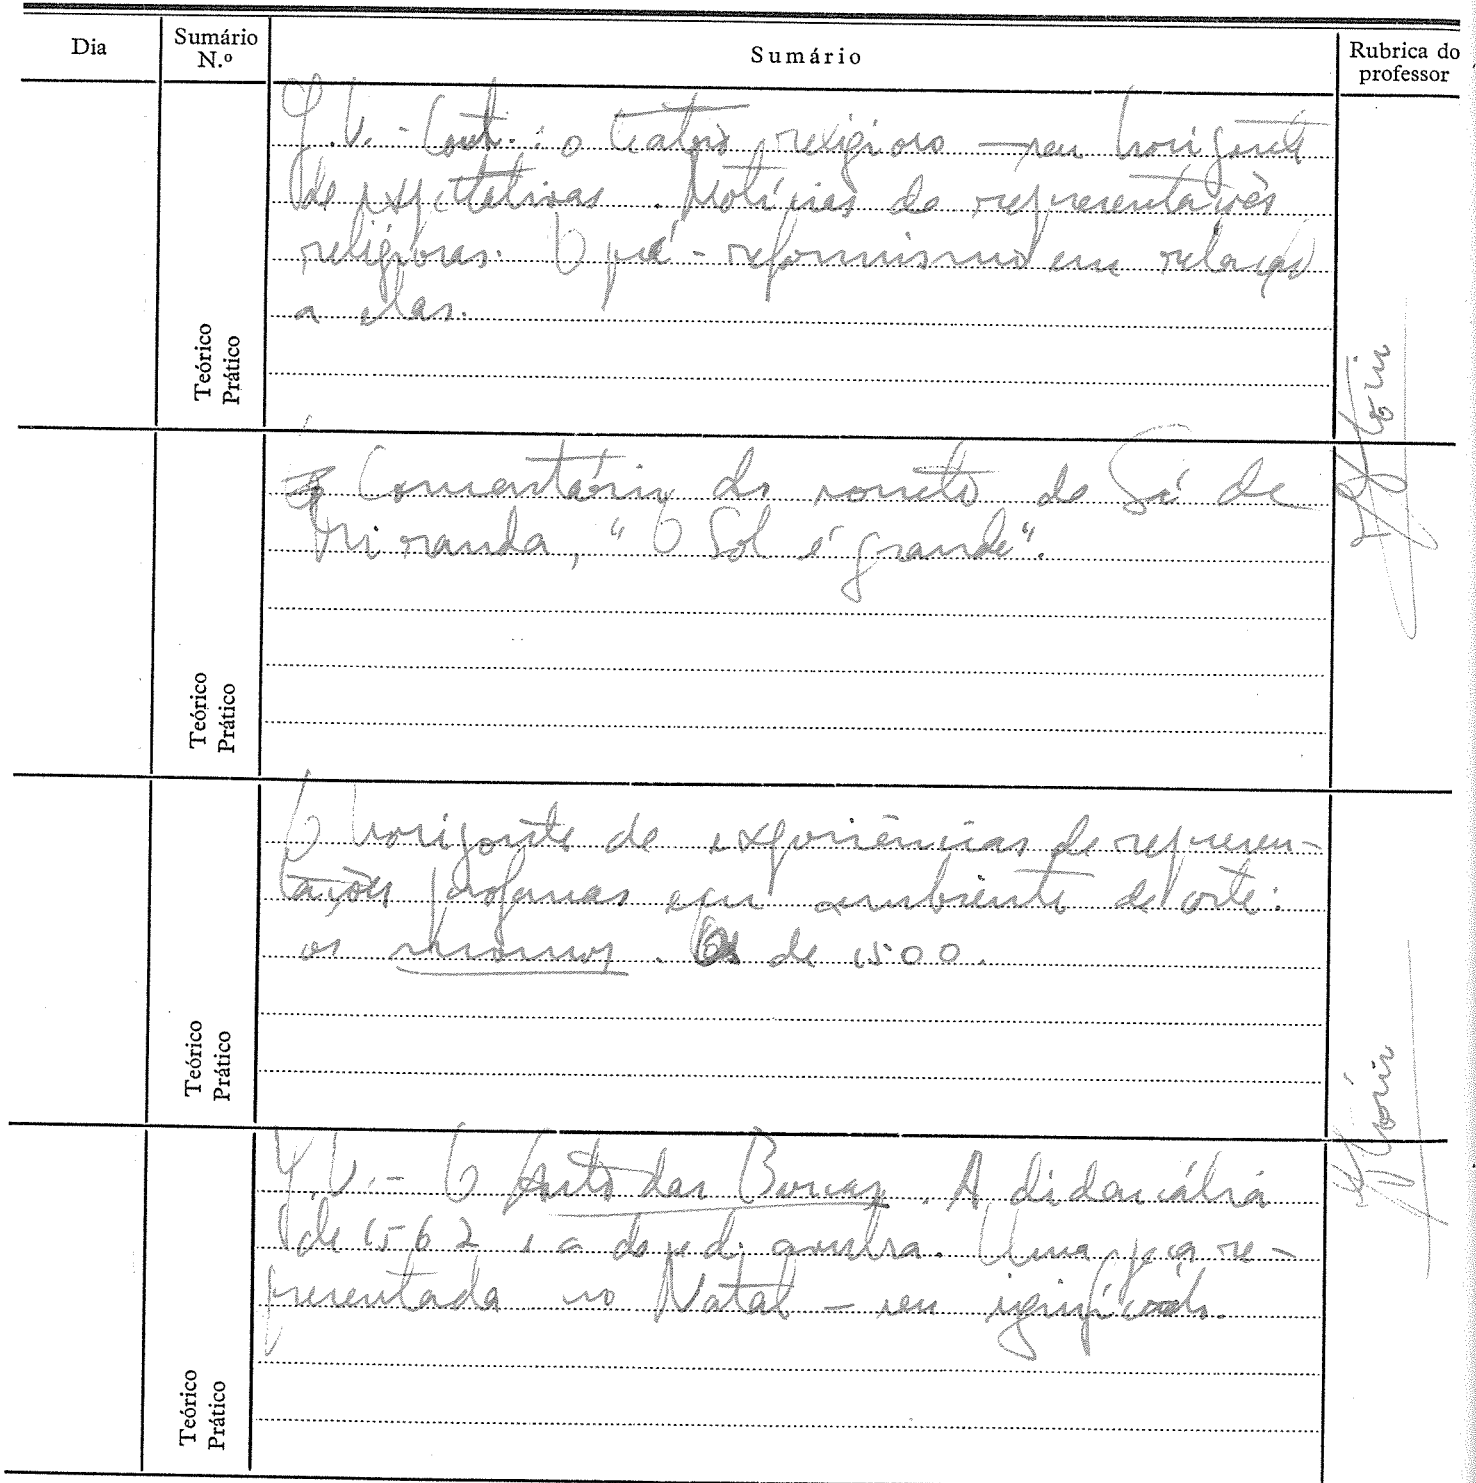 Dia
Sumário
N.º
Sumário
Rubrica do
professor
G.V. - Cont.: o teatro religioso - seu horizonte
de expectativas. Notícias de representações
religiosas. O pré-reformismo em relação
a elas.
Teórico
Prático
Comentário do soneto de Sá de
Miranda, "O Sol é grande".
Teórico
Prático
O horizonte de experiências de represen-
tações profanas em ambiente de corte:
os momos. Os de 1500.
Teórico
Prático
G.V. - O Auto das Barcas. A didascália
de 1562 e a do ed. avulsa. Uma peça re-
presentada no Natal - seu significado.
Teórico
Prático